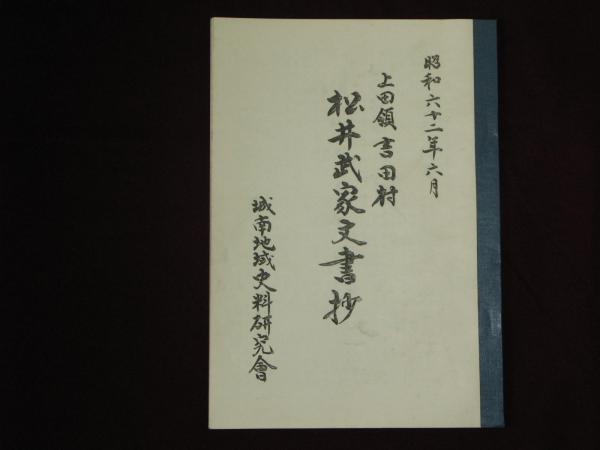 昭和六十二年六月
上田領吉田村
松井武家文書抄
城南地域史料研究會